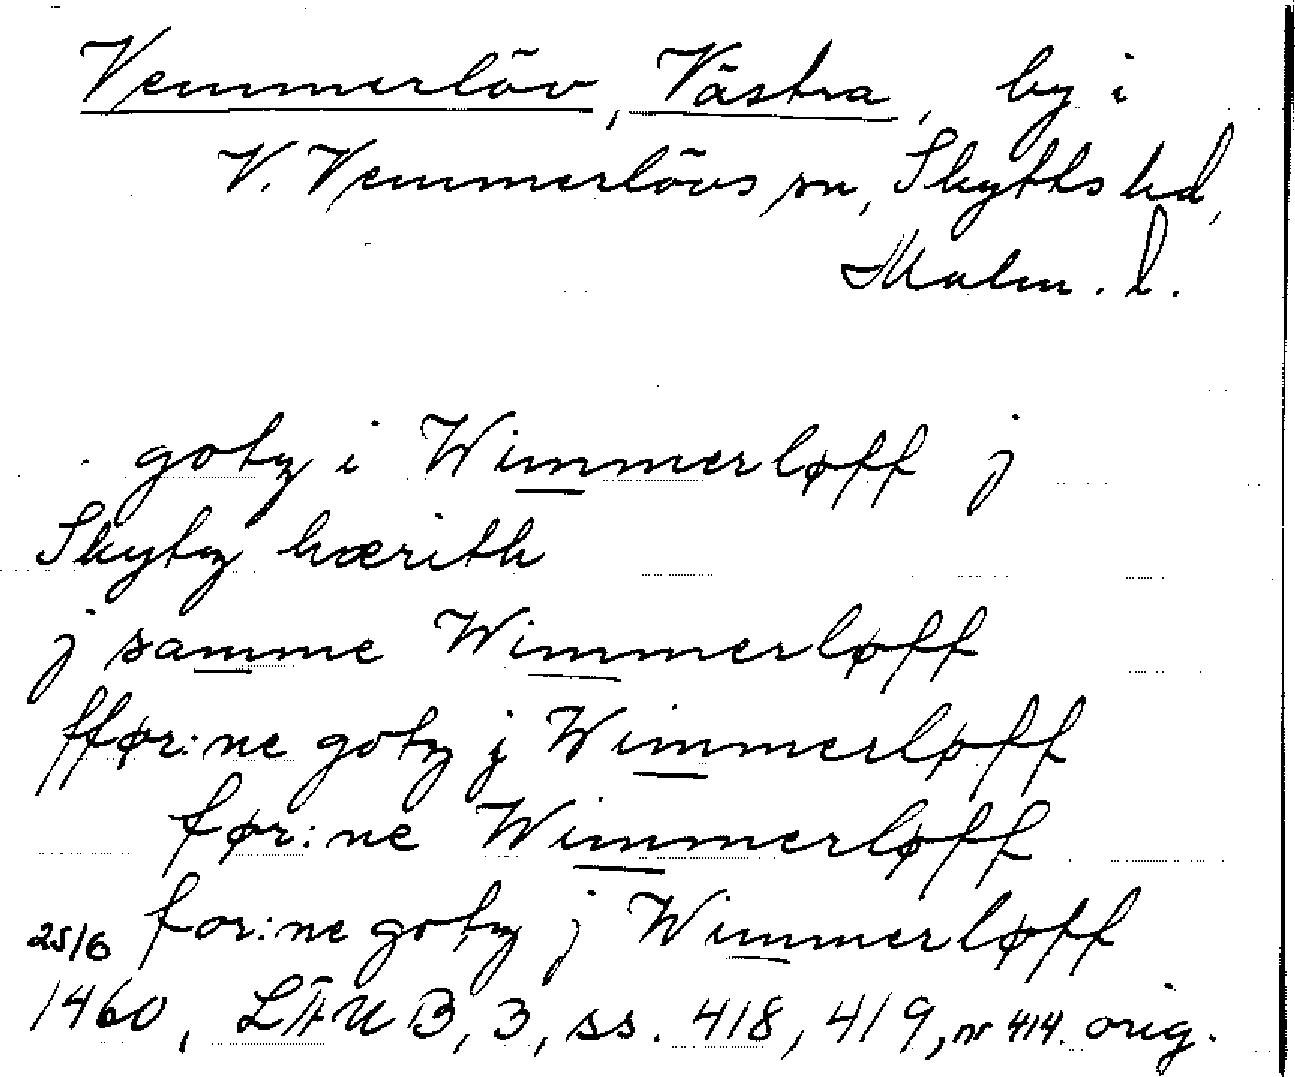 Vemmerlöv, Västra, by i
V. Vemmerlövs sn, Skytts hd,
Malm. l.
gotz i Wimmerløff j
Skytz hærith
j samme Wimmerløff
fførne gotz j Wimmerløff
før:ne Wimmerløff
for:ne gotz j Wimmerløff
25/6
1460, LÄUB, 3, ss. 418, 419, nr 414. orig.